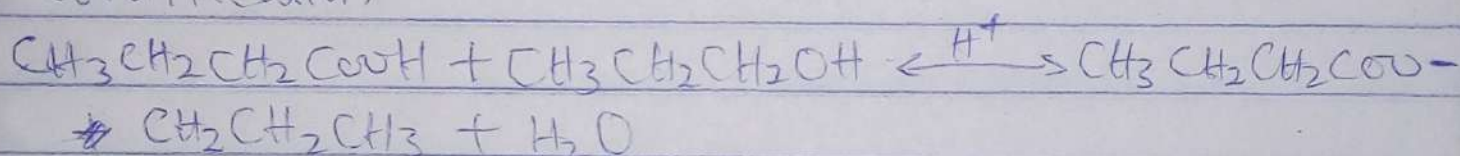 CH3CH2CH2COOH + CH3CH2CH2OH <-H+-> CH3CH2CH2COO-
CH2CH2CH3 + H2O